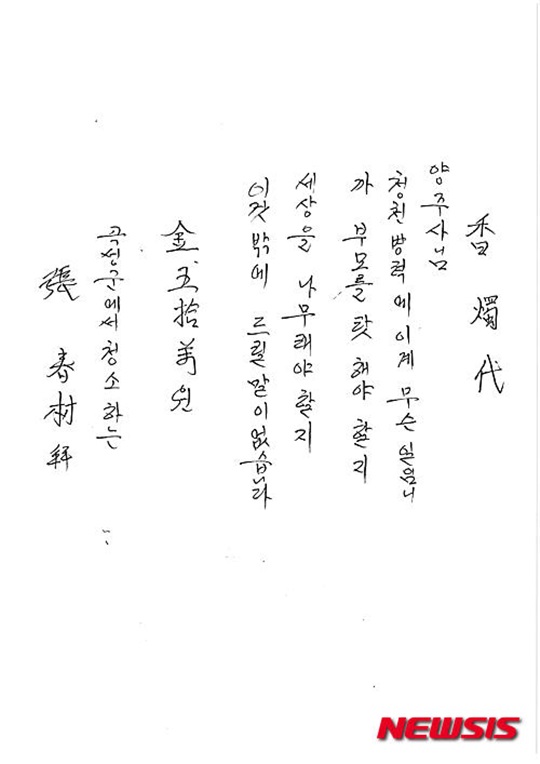 香燭代
양주사님
청천병력에이게 무슨일임니
까 부모를 탓해야 할지
세상을 나무래야할지
이것밖에 드릴말이없습니다
金五拾萬원
곡성군에서청소하는
張春村拜
NEWSIS